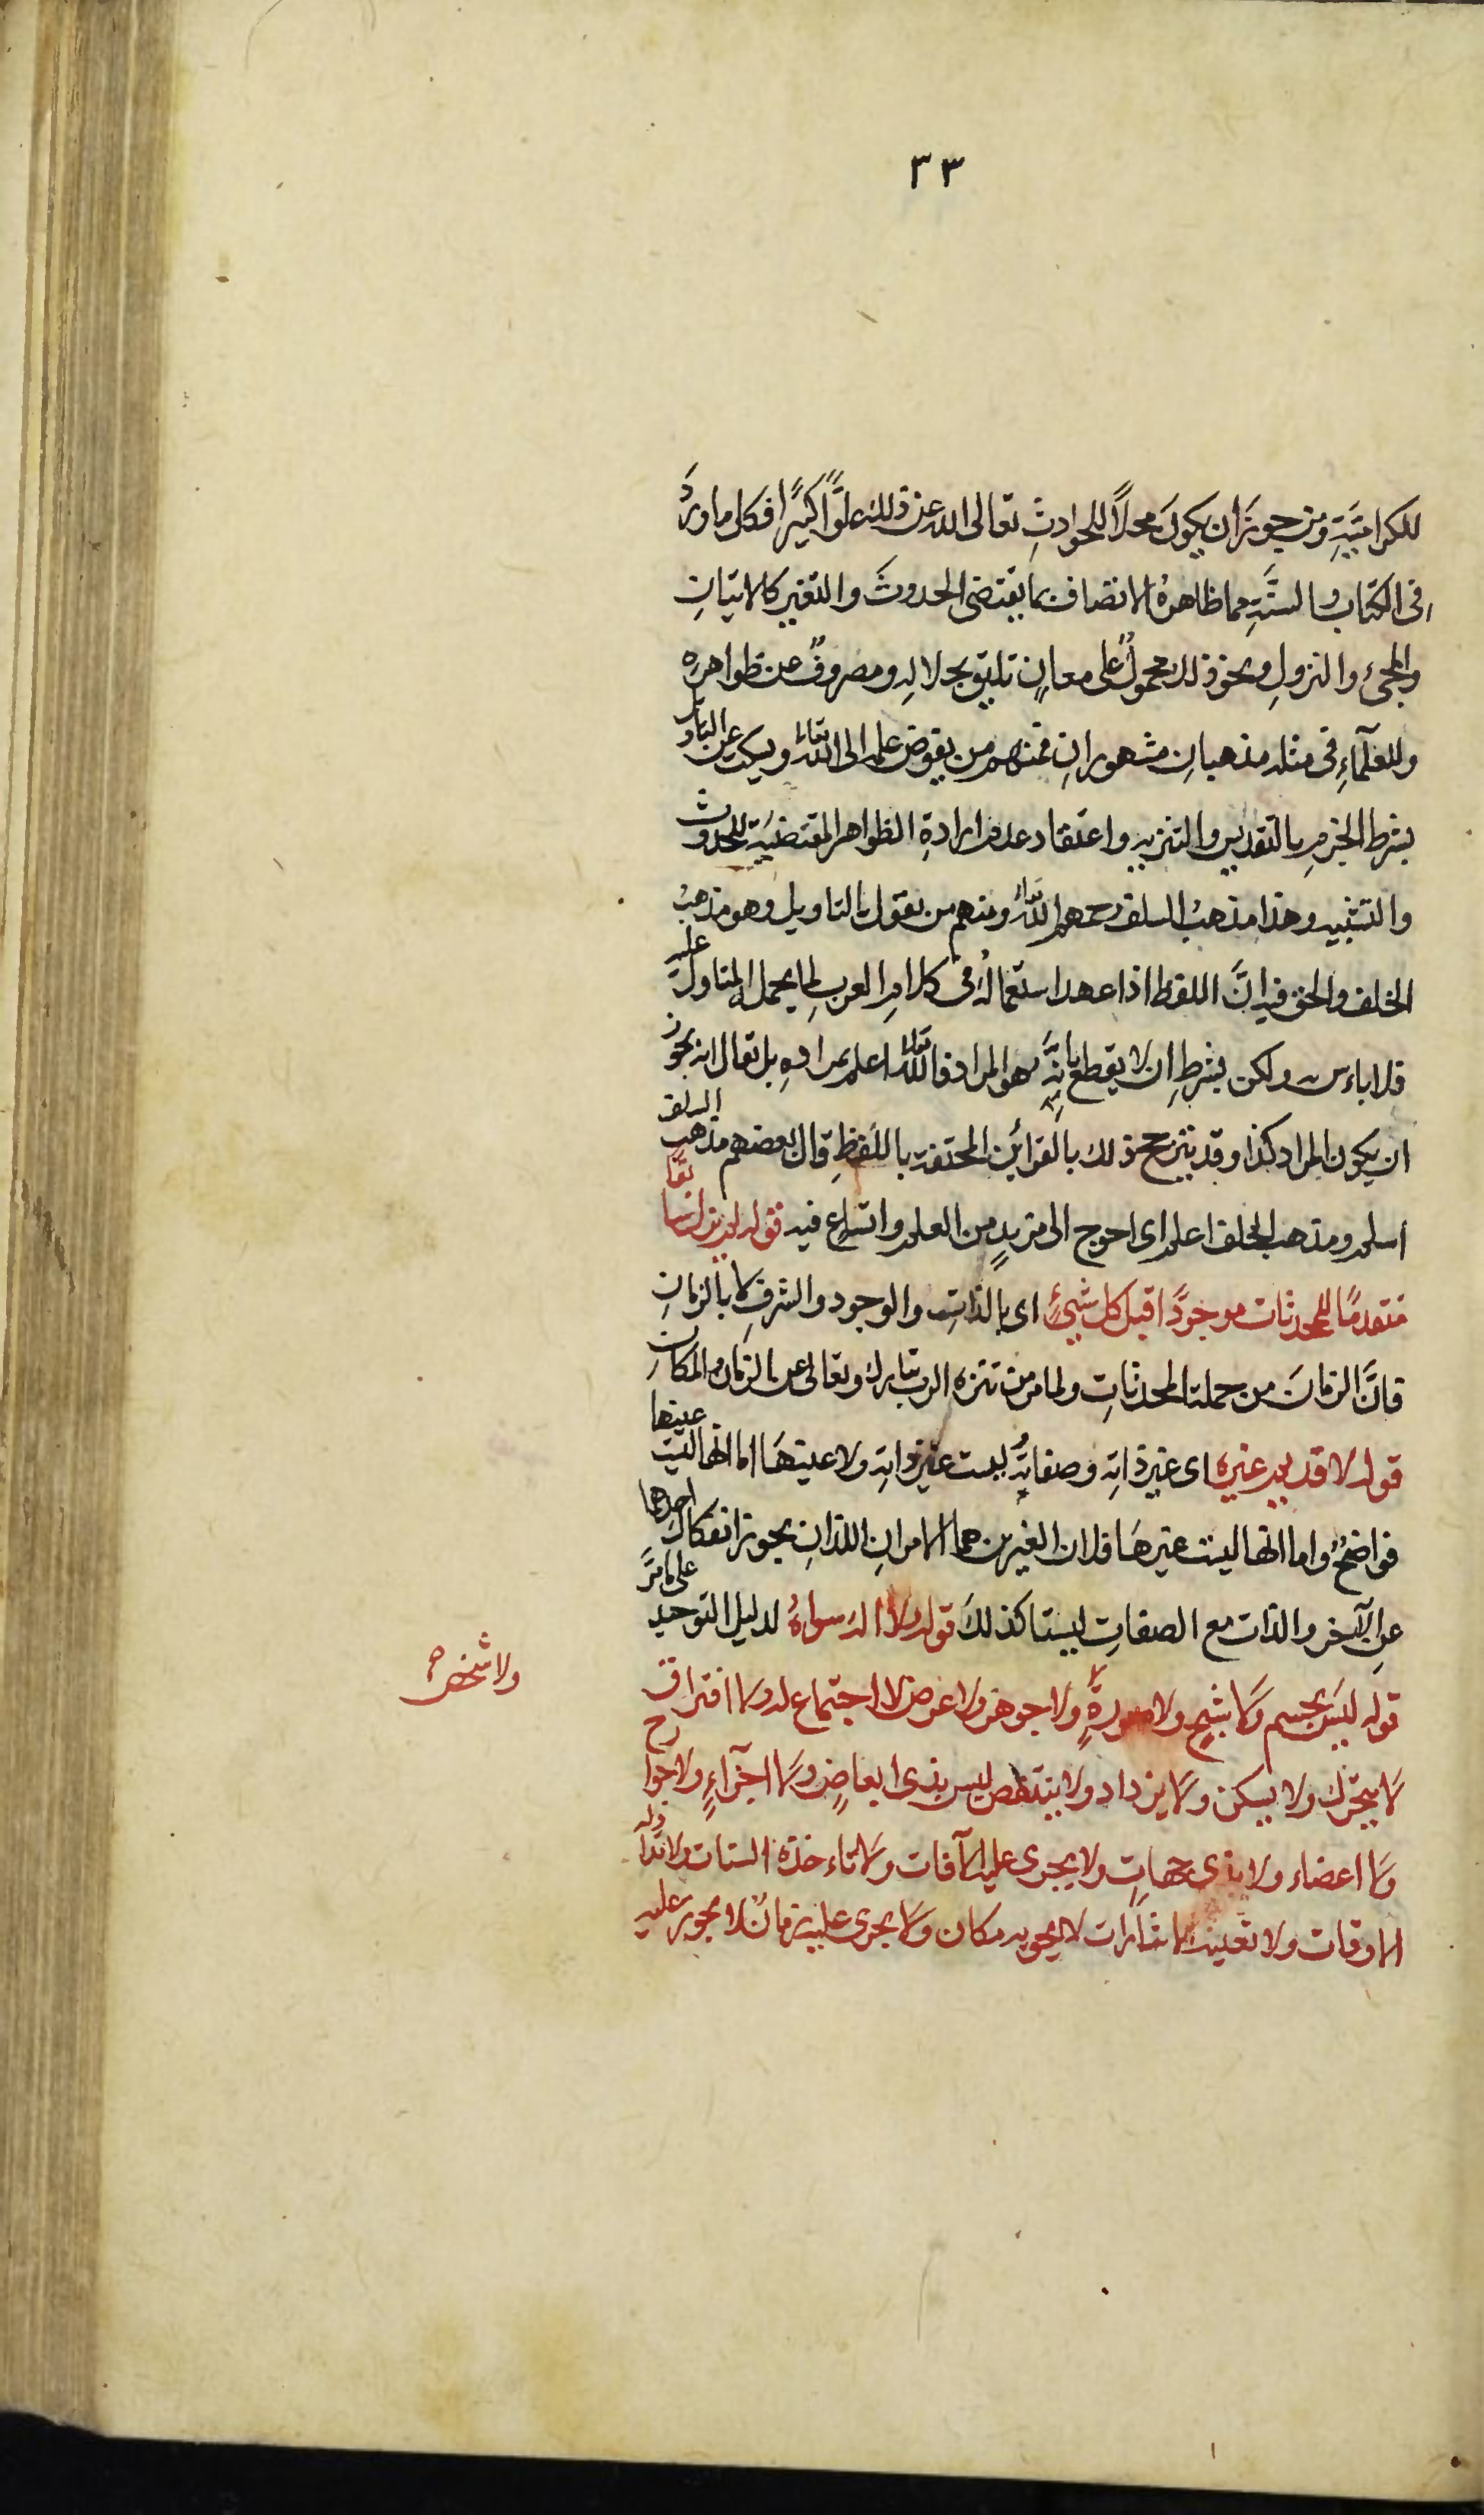 ٣٣
للكراميَّةِ ومن جوزَ ان يكونَ محلاً للحوادثِ تعالى الله عن ذلك علوًّا كبيرًا فكل ما وردَ
فى الكتاب والسنَّةِ مما ظاهرهُ الاتصاف بما يقتضى الحدوثَ والتغير كالاتيانِ
والمجئ والنزولِ ونحو ذلك محمولٌ على معانٍ تليق بجلالهِ ومصروفٌ عن ظواهرهِ
وللعلمآءِ فى مثله مذهبانِ مشهورانِ فمنهم من يفوض علمه الى الله تعالى ويسكت عن التاويل
بشرط الجزمِ بالتقديس والتنزيه واعتقاد عدم ارادةِ الظواهر المقتضيَة للحدوث
والتشبيه وهذا مذهبُ السلف رحمهم الله تعالى ومنهم من يقول بالتاويل وهو مذهبُ
الخلف والحق فيه انَّ اللفظ اذا عهد استعمالهُ فى كلام العربِ لما يحمل المتاول عليه
فلا باءس به ولكن بشرطِ ان لا يقطع بانهُ هو المراد فالله تعالى اعلم بمرادهِ بل يقال انه يجوز
ان يكون المراد كذا وقد يترجح ذلك بالقرائن المحتفة باللفظِ قال بعضهم مذهب السلف
اسلم ومذهب الخلف اعلم اى احوج الى مزيدٍ من العلم واتساع فيه قوله لم يزل سابقا
متقدمًا للمحدثات موجودًا قبل كل شيئٍ اى بالذاتِ والوجود والشرفِ لا بالزمانِ
فانَّ الزمانَ من جملة المحدثاتِ ولما مر من تنزه الرب تبارك وتعالى عن الزمان والمكان
قوله لا قديم غيره اى غير ذاتهِ وصفاتهُ ليست غير ذاتهِ ولا عينهَا اما انها ليست عينها
فواضحٌ واما انها ليست غيرهَا فلان الغيرين هما الامرانِ اللذانِ يجوز انفكاك احدهما
عنِ الآخر والذات مع الصفاتِ ليستا كذلكَ قوله ولا اله سواهُ لدليل التوحيد على مامرَّ
قوله ليسَ بجسم ولا شبحٍ ولا صورةٍ ولا جوهر ولا عرض لا اجتماع له ولا افتراق
ولا شخص صح
لا يتحرك ولا يسكن ولا يزداد ولا ينتقص ليس بذى ابعاضٍ ولا اجزآءٍ ولا جوارح
ولا اعضاء ولا بذى جهاتٍ ولا يجرى عليه الآفات ولا تاءخذه السنات ولا تداوله
الاوقات ولا تعينه الاشارات لا يحويه مكان ولا يجرى عليه زمانٌ لا يجوز عليه